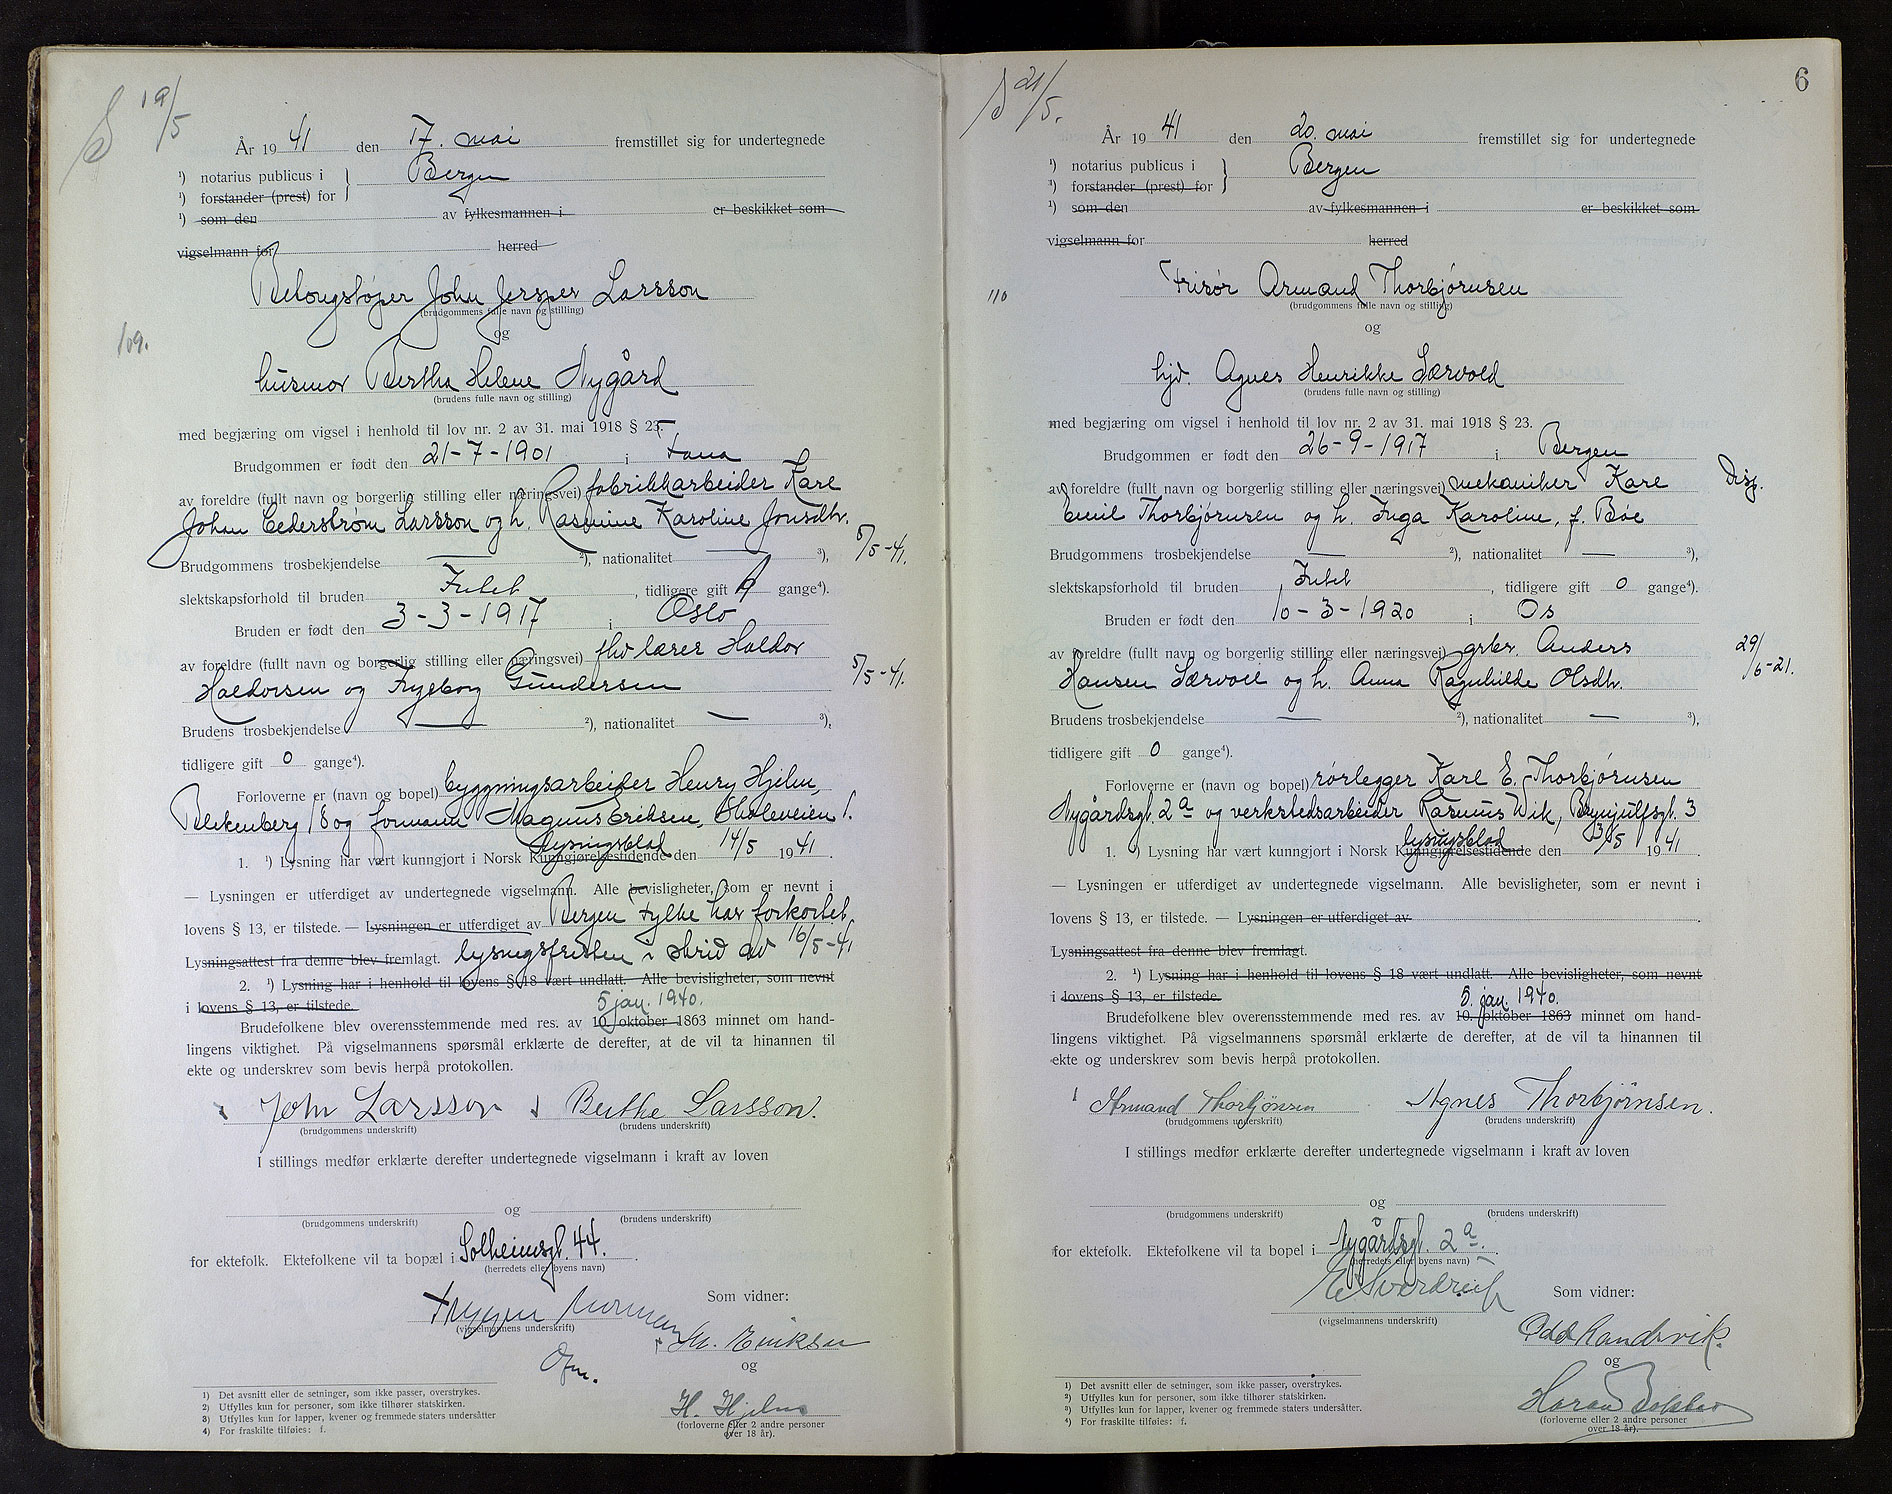 19/5
År 1941 den 17. mai fremstillet sig for undertegnede
¹) notarius publicus i Bergen
¹) forstander (prest) for
¹) som den av fylkesmannen i er beskikket som
vigselmann for herred
Betongstøper John Jesper Larsson
(brudgommens fulle navn og stilling)
og
109.
husmor Bertha Helene Nygård
(brudens fulle navn og stilling)
med begjæring om vigsel i henhold til lov nr. 2 av 31. mai 1918 § 23.
Brudgommen er født den 21-7-1901 i Fana
av foreldre (fullt navn og borgerlig stilling eller næringsvei) fabrikkarbeider Karl
Johan Cederstrøm Larsson og h. Rasmine Karoline Jonsdtr. 5/5-41.
Brudgommens trosbekjendelse — ²), nationalitet — ³),
slektskapsforhold til bruden Intet, tidligere gift gange⁴).
Bruden er født den 3-3-1917 i Oslo
av foreldre (fullt navn og borgerlig stilling eller næringsvei) fhv lærer Haldor
Haldorsen og Ingeborg Gundersen 5/5-41.
Brudens trosbekjendelse — ²), nationalitet — ³),
tidligere gift 0 gange⁴).
Forloverne er (navn og bopel) bygningsarbeider Henry Hjelm,
Blekenberg 18 og formann Magnus Eriksen, Skoleveien 1.
lysningsblad
1. ¹) Lysning har vært kunngjort i Norsk Kunngjørelsestidende den 14/5 1941.
— Lysningen er utferdiget av undertegnede vigselmann. Alle bevisligheter, som er nevnt i
lovens § 13, er tilstede. — Lysningen er utferdiget av Bergen Fylke har forkortet
Lysningsattest fra denne blev fremlagt. lysningsfristen i skriv av 16/5-41
2. ¹) Lysning har i henhold til lovens § 18 vært undlatt. Alle bevisligheter, som nevnt
i lovens § 13, er tilstede. 5 jan. 1940.
Brudefolkene blev overensstemmende med res. av 10. oktober 1863 minnet om hand-
lingens viktighet. På vigselmannens spørsmål erklærte de derefter, at de vil ta hinannen til
ekte og underskrev som bevis herpå protokollen.
John Larsson Berthe Larsson.
(brudgommens underskrift) (brudens underskrift)
I stillings medfør erklærte derefter undertegnede vigselmann i kraft av loven
og
(brudgommens underskrift) (brudens underskrift)
for ektefolk. Ektefolkene vil ta bopæl i Solheimsgt. 44.
(herredets eller byens navn)
Som vidner:
(vigselmannens underskrift)
M. Eriksen
og
H. Hjelm
(forloverne eller 2 andre personer
over 18 år).
¹) Det avsnitt eller de setninger, som ikke passer, overstrykes.
²) Utfylles kun for personer, som ikke tilhører statskirken.
³) Utfylles kun for lapper, kvener og fremmede staters undersåtter
⁴) For fraskilte tilføies: f.
6
21/5.
År 1941 den 20. mai fremstillet sig for undertegnede
¹) notarius publicus i Bergen
¹) forstander (prest) for
¹) som den av fylkesmannen i er beskikket som
vigselmann for herred
110
Frisør Armand Thorbjørnsen
(brudgommens fulle navn og stilling)
og
hjd. Agnes Henrikke Særvold
(brudens fulle navn og stilling)
med begjæring om vigsel i henhold til lov nr. 2 av 31. mai 1918 § 23.
Brudgommen er født den 26-9-1917 i Bergen
av foreldre (fullt navn og borgerlig stilling eller næringsvei) mekaniker Karl Disp.
Emil Thorbjørnsen og h. Inga Karoline, f. Bøe
Brudgommens trosbekjendelse — ²), nationalitet — ³),
slektskapsforhold til bruden Intet, tidligere gift 0 gange⁴).
Bruden er født den 10-3-1920 i Os
av foreldre (fullt navn og borgerlig stilling eller næringsvei) grbr. Anders 29/6-21.
Hansen Særvoll og h. Anna Ragnhilde Olsdtr.
Brudens trosbekjendelse — ²), nationalitet — ³),
tidligere gift 0 gange⁴).
Forloverne er (navn og bopel) rørlegger Karl E. Thorbjørnsen
Nygårdsgt. 2a og verkstedsarbeider Rasmus Wik, Brynjulfsgt. 3
lysningsblad
1. ¹) Lysning har vært kunngjort i Norsk Kunngjørelsestidende den 13/5 1941.
— Lysningen er utferdiget av undertegnede vigselmann. Alle bevisligheter, som er nevnt i
lovens § 13, er tilstede. — Lysningen er utferdiget av
Lysningsattest fra denne blev fremlagt.
2. ¹) Lysning har i henhold til lovens § 18 vært undlatt. Alle bevisligheter, som nevnt
i lovens § 13, er tilstede. 5. jan. 1940.
Brudefolkene blev overensstemmende med res. av 10. oktober 1863 minnet om hand-
lingens viktighet. På vigselmannens spørsmål erklærte de derefter, at de vil ta hinannen til
ekte og underskrev som bevis herpå protokollen.
Armand Thorbjørnsen Agnes Thorbjørnsen.
(brudgommens underskrift) (brudens underskrift)
I stillings medfør erklærte derefter undertegnede vigselmann i kraft av loven
og
(brudgommens underskrift) (brudens underskrift)
for ektefolk. Ektefolkene vil ta bopel i Nygårdsgt. 2a.
(herredets eller byens navn)
E Sverdrup Som vidner:
(vigselmannens underskrift)
Odd Randsvik.
og
(forloverne eller 2 andre personer
over 18 år).
¹) Det avsnitt eller de setninger, som ikke passer, overstrykes.
²) Utfylles kun for personer, som ikke tilhører statskirken.
³) Utfylles kun for lapper, kvener og fremmede staters undersåtter.
⁴) For fraskilte tilføies: f.